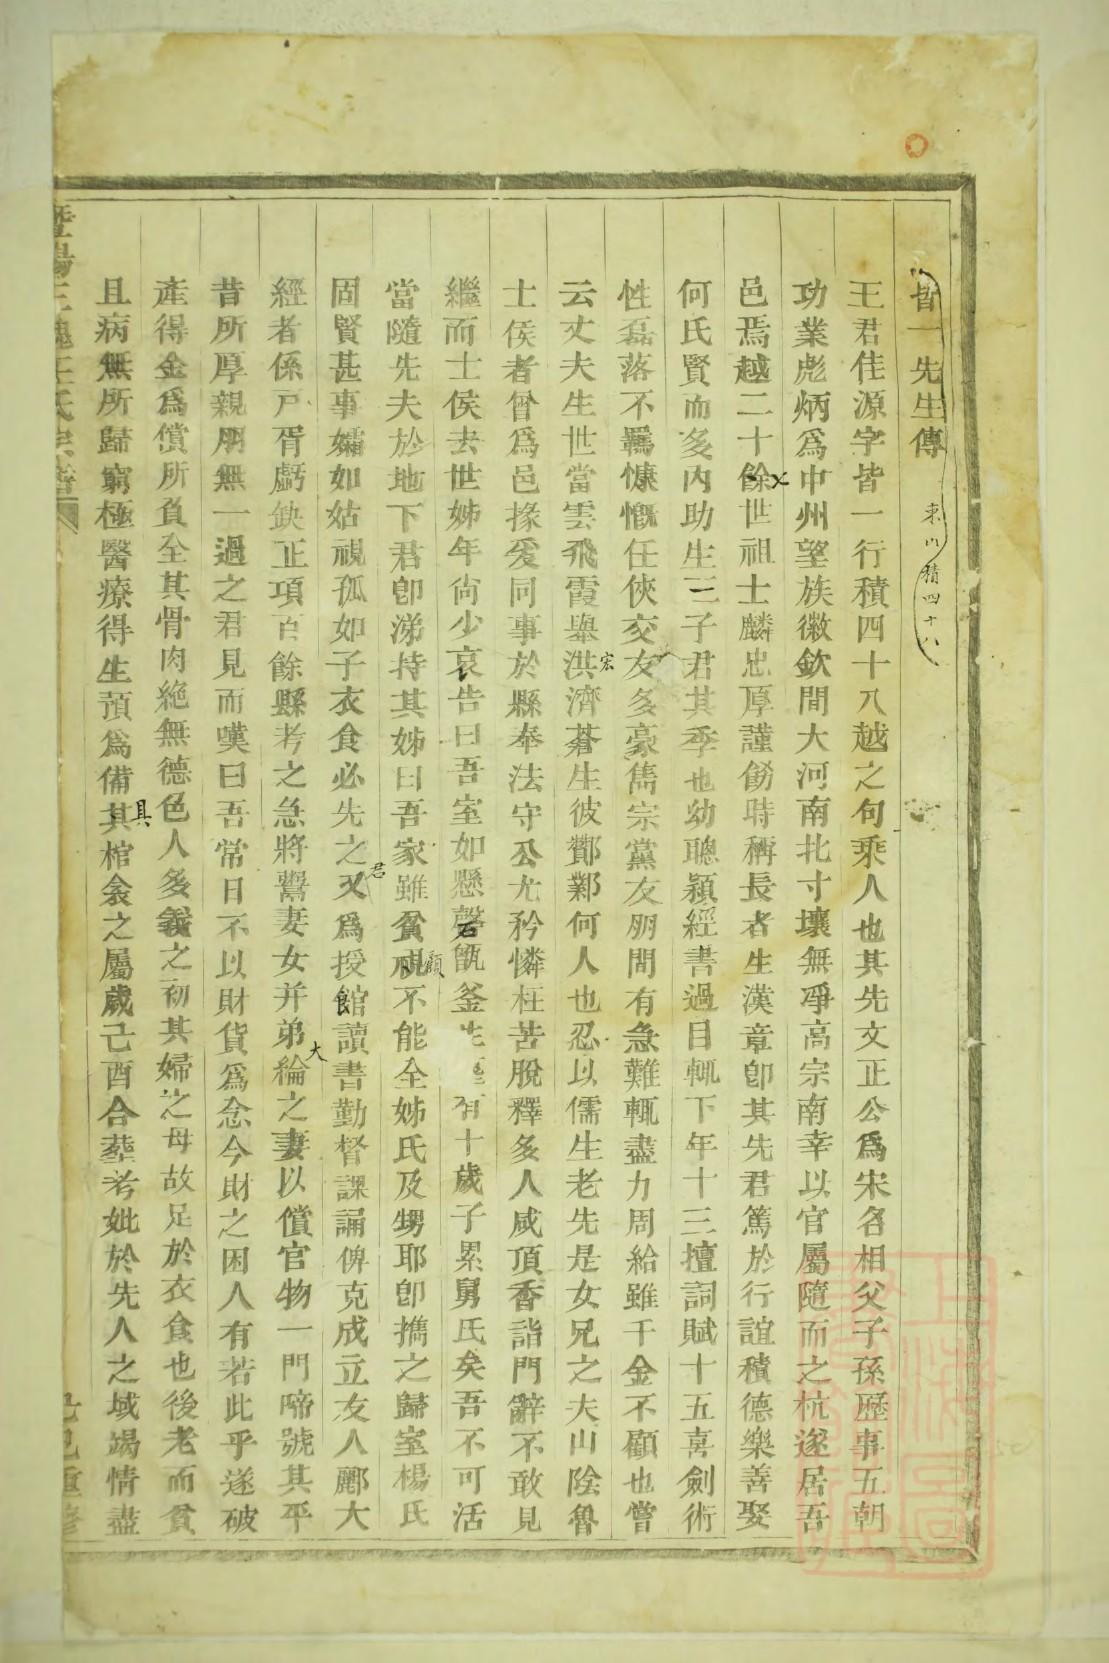 皆一先生傳
東山積四十八
王君佳源字皆一行積四十八越之句乘人也其先文正公爲宋名相父子孫歷事五朝
功業彪炳爲中州望族徽欽間大河南北寸壤無凈高宗南幸以官屬隨而之杭遂居吾
邑焉越二十餘世祖士麟忠厚謹飭時稱長者生漢章卽其先君篤於行誼積德樂善娶
何氏賢而多內助生三子君其季也幼聰穎經書過目輒下年十三擅詞賦十五喜劍術
性磊落不羈慷慨任俠交友多豪雋宗黨友朋間有急難輒盡力周給雖千金不顧也嘗
云丈夫生世當雲飛霞舉洪濟蒼生彼酇鄴何人也忍以儒生老先是女兄之夫山陰魯
宏
士侯者曾爲邑掾爰同事於縣奉法守公尤矜憐枉苦脫釋多人咸頂香詣門辭不敢見
繼而士侯去世姊年尙少哀告曰吾室如懸磬甑釜生塵有十歲子累舅氏矣吾不可活
石
當隨先夫於地下君卽涕持其姊曰吾家雖貧視不能全姊氏及甥耶卽攜之歸室楊氏
顧
固賢甚事孀如姑視孤如子衣食必先之又爲授館讀書勤督課誦俾克成立友人酈大
君
經者係戸胥虧缺正項百餘縣考之急將鬻妻女幷弟綸之妻以償官物一門啼號其平
大
昔所厚親朋無一過之君見而嘆曰吾常日不以財貨爲念今財之困人有若此乎遂破
產得金爲償所負全其骨肉絶無德色人多義之初其婦之母故足於衣食也後老而貧
且病無所歸窮極醫療得生預爲備其棺衾之屬歲己酉合葬考妣於先人之域竭情盡
具
暨陽王氏宗譜
己巳重修
上海圖書館藏